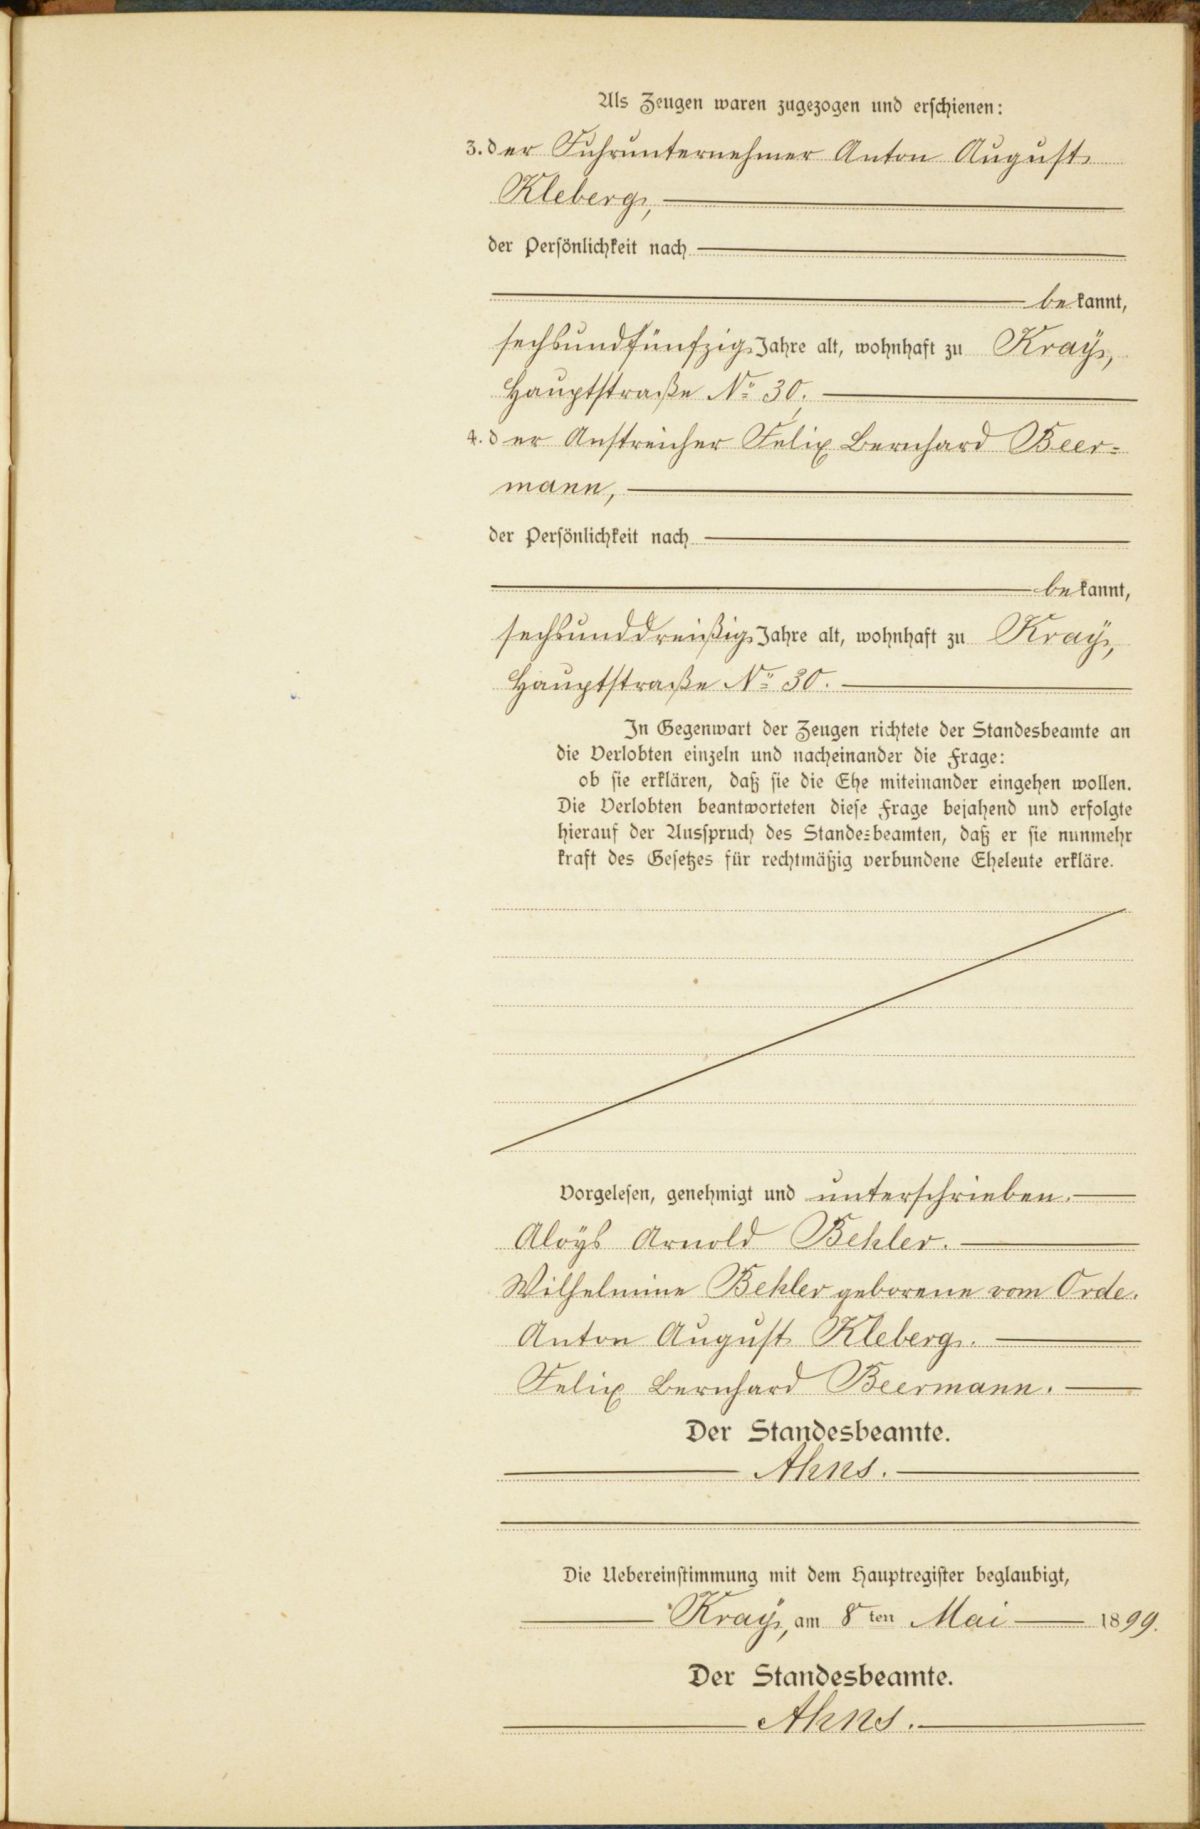 Als Zeugen waren zugezogen und erschienen:
3. der Fuhrunternehmer Anton August
Kleberg,
der Persönlichkeit nach
bekannt,
sechsundfünfzig Jahre alt, wohnhaft zu Kray,
Hauptstraße No 30.
4. der Anstreicher Felix Bernhard Beer=
mann,
der Persönlichkeit nach
bekannt,
sechsunddreißig Jahre alt, wohnhaft zu Kray,
Hauptstraße No 30.
In Gegenwart der Zeugen richtete der Standesbeamte an
die Verlobten einzeln und nacheinander die Frage:
ob sie erklären, daß sie die Ehe miteinander eingehen wollen.
Die Verlobten beantworteten diese Frage bejahend und erfolgte
hierauf der Ausspruch des Standesbeamten, daß er sie nunmehr
kraft des Gesetzes für rechtmäßig verbundene Eheleute erkläre.
Vorgelesen, genehmigt und unterschrieben.
Aloÿs Arnold Behler.
Wilhelmine Behler geborene vom Orde.
Anton August Kleberg.
Felix Bernhard Beermann.
Der Standesbeamte.
Ahns.
Die Uebereinstimmung mit dem Hauptregister beglaubigt,
Kray, am 8ten Mai 1899.
Der Standesbeamte.
Ahns.